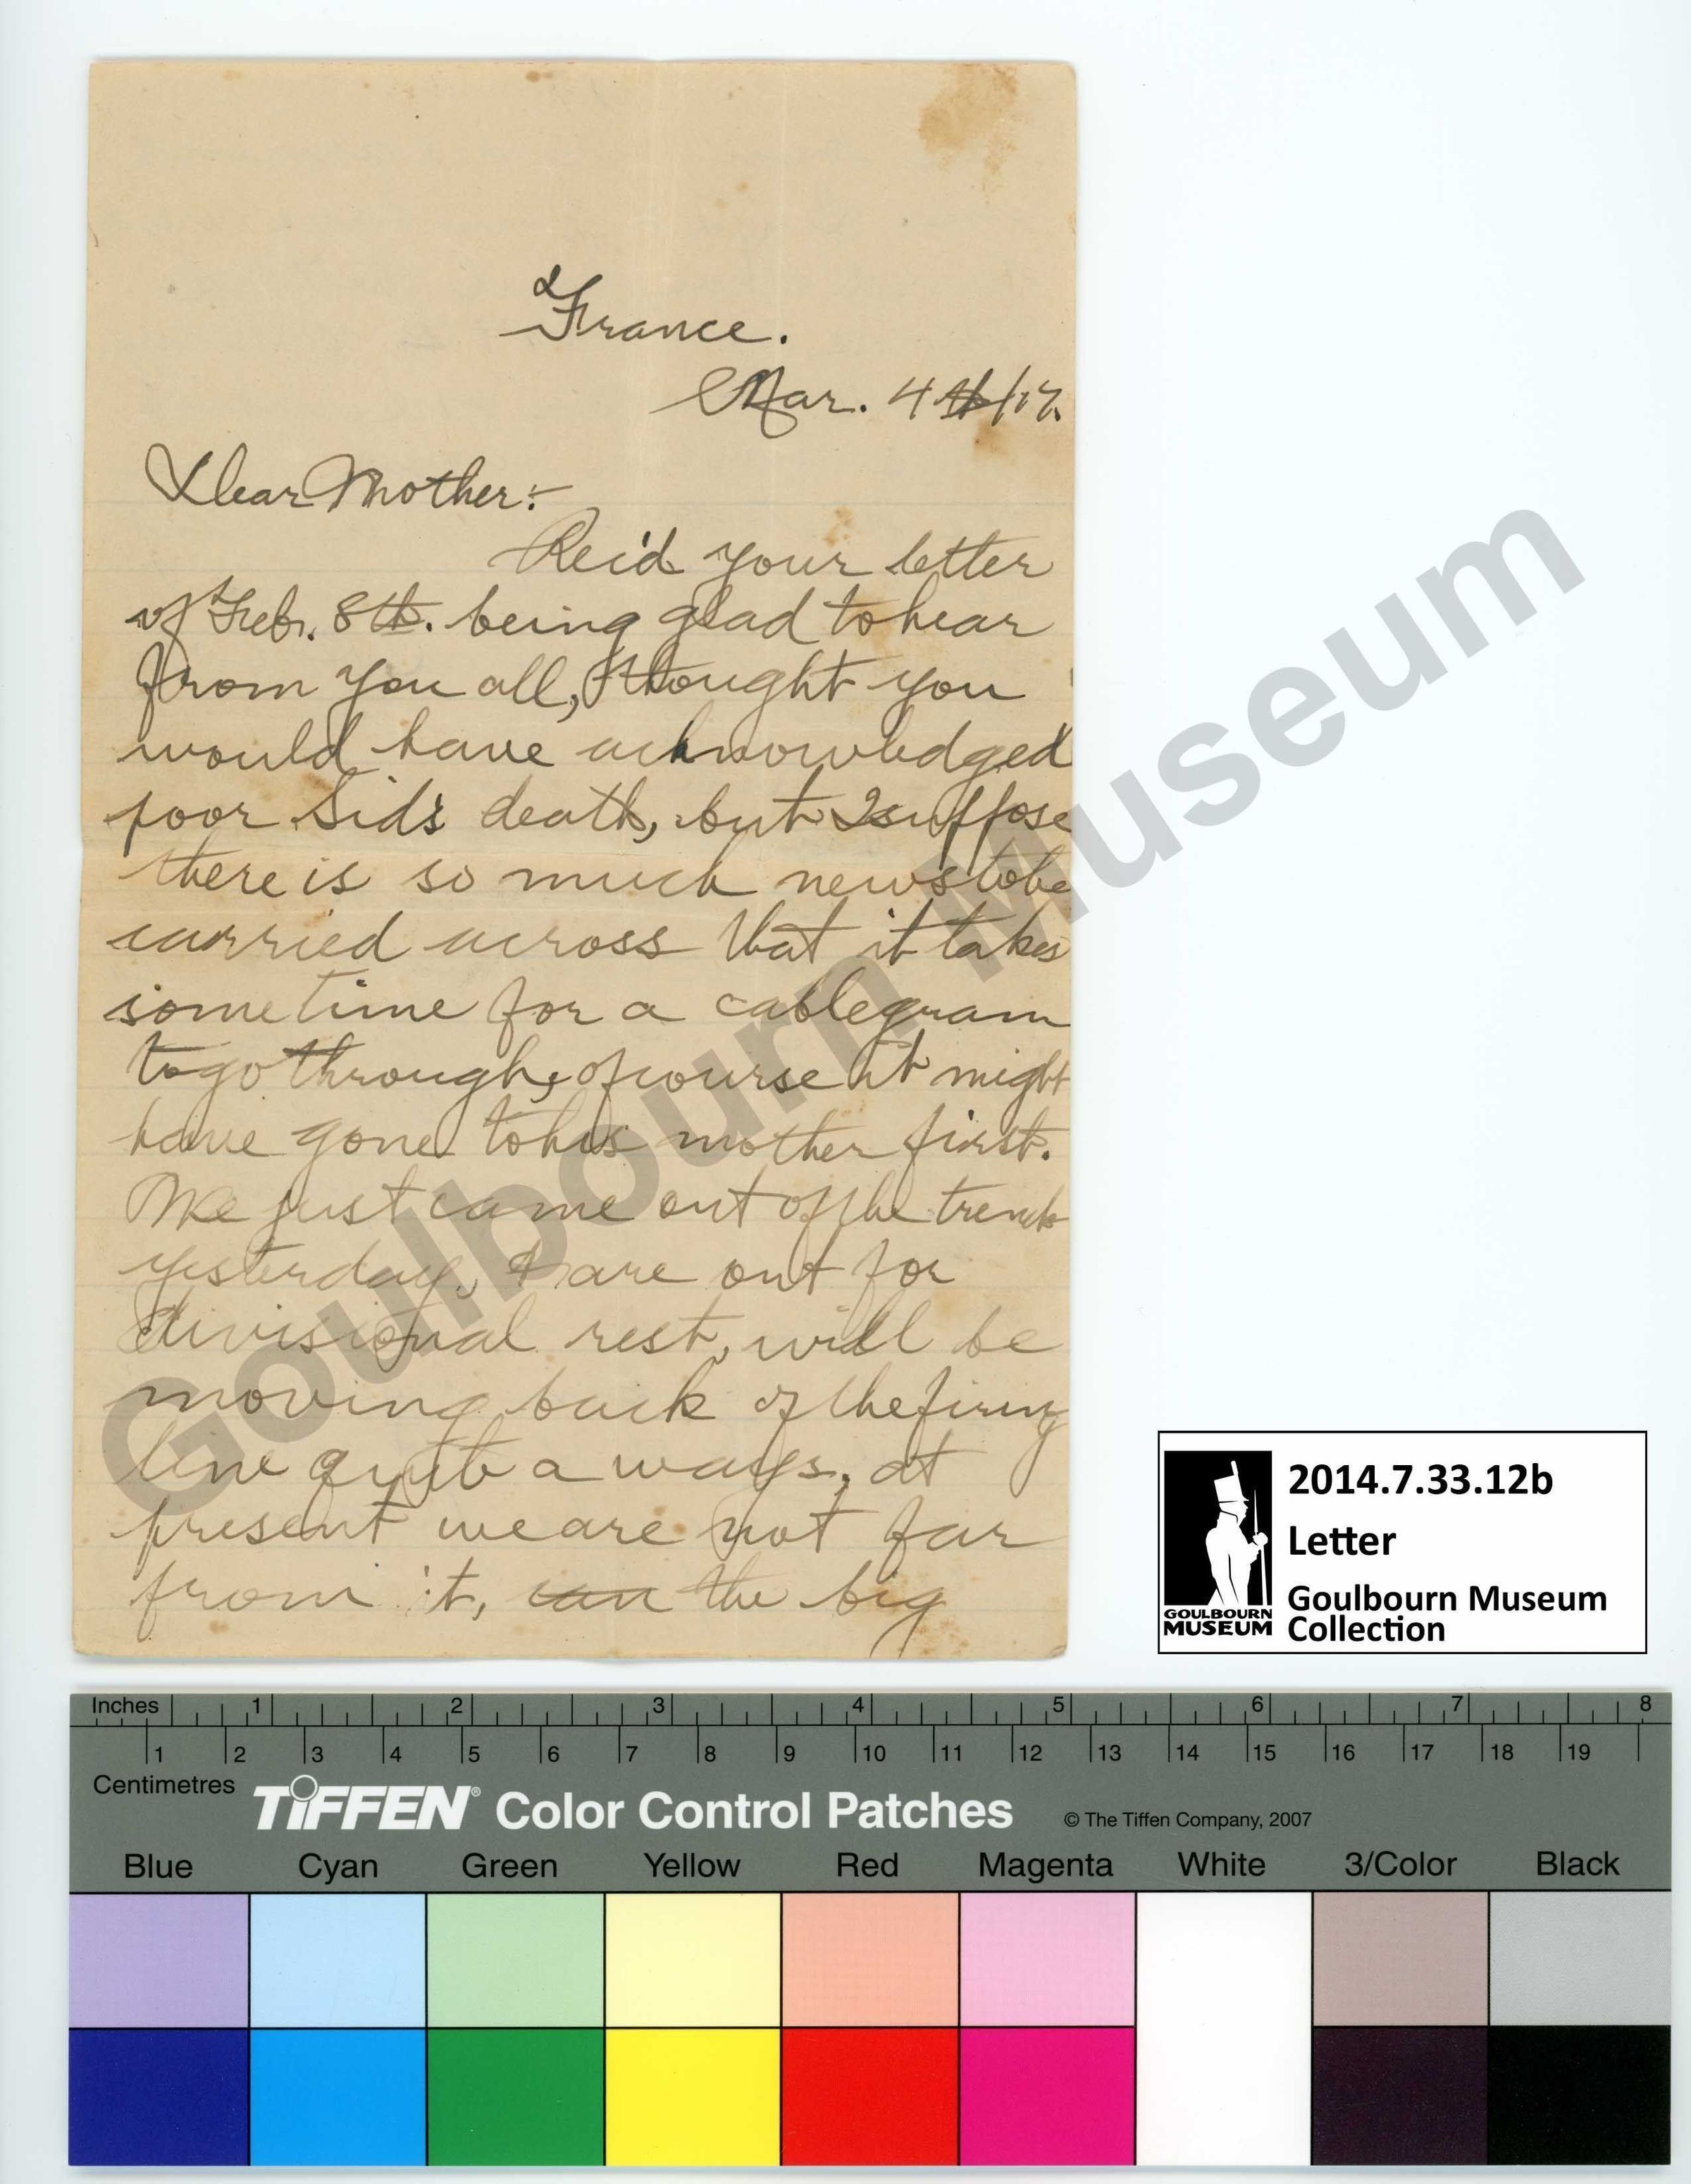 France.
Mar. 4th/17.
Dear Mother:-
Rec'd your letter
of Feb. 8th. being glad to hear
from you all, thought you
would have acknowledged
poor Sid's death, but I suppose
there is so much news to be
carried across that it takes
sometime for a cablegram
to go through, of course it might
have gone to his mother first.
We just came out of the trench
yesterday, & are out for
divisional rest, will be
moving back of the firing
line quite a ways, at
present we are not far
from it, can the big
Goulbourn Museum
2014.7.33.12b
Letter
Goulbourn Museum
Collection
GOULBOURN
MUSEUM
Inches 1 2 3 4 5 6 7 8
1 2 3 4 5 6 7 8 9 10 11 12 13 14 15 16 17 18 19
Centimetres
TIFFEN® Color Control Patches © The Tiffen Company, 2007
Blue Cyan Green Yellow Red Magenta White 3/Color Black